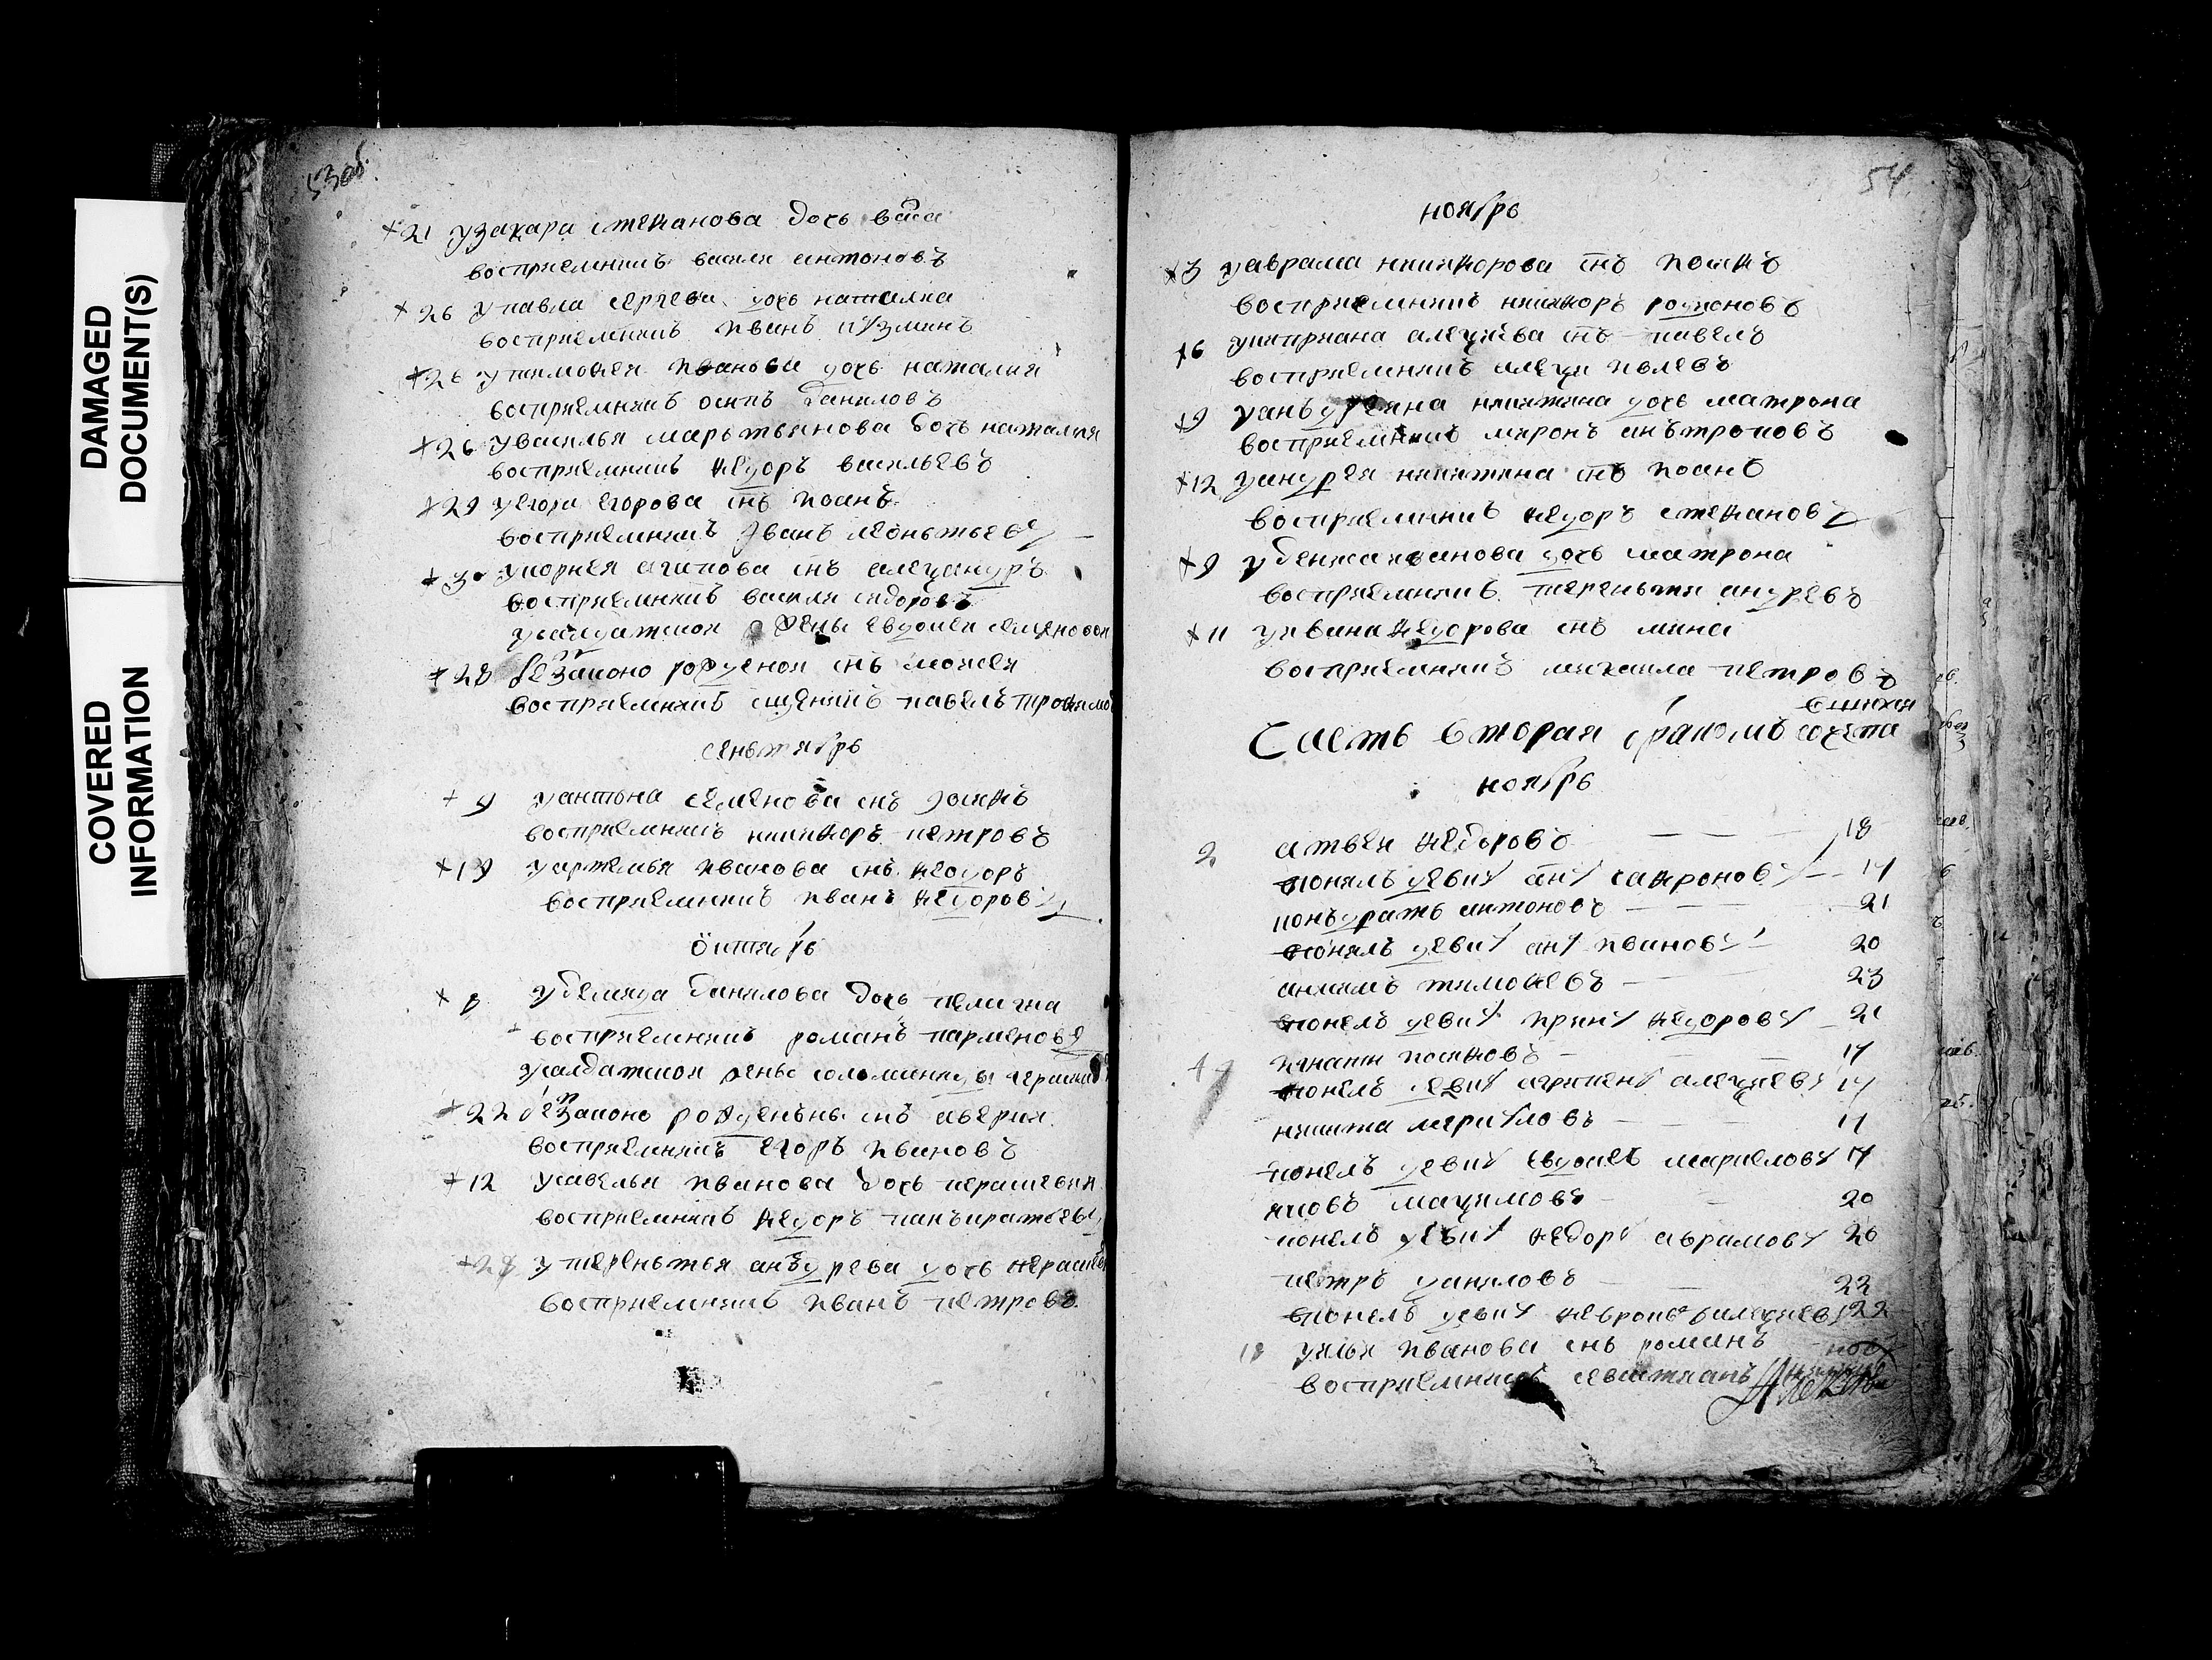 DAMAGED
DOCUMENT(S)
COVERED
INFORMATION
53об.
21 у захара степанова дочь васа
восприемникъ василя антоновъ
26 у павла сергева дочь наталиа
восприемникъ иванъ кузминъ
26 у тимофея иванова дочь наталия
восприемникъ осипъ даниловъ
26 у василья марътьянова дочь наталия
восприемникъ феѡдоръ васильевъ
29 у егора егорова снъ иоанъ
восприемникъ иванъ леонътьевъ
30 у корнея агапова снъ алеѯандръ
восприемникъ василя сидоровъ
у салдатской евдокеи семеновой
28 незаконо рожденой снъ моисея
восприемникъ сщеникъ павелъ трофимо
сеньтябрь
9 у антона семенова снъ
восприемникъ никифоръ петровъ
19 у артемья иванова снъ феодоръ
восприемникъ иванъ федоровъ
октябрь
8 у демида данилова дочь пелагиа
восприемникъ романъ парменовъ
у салдатской
22 незаконо рожденъны снъ аверкия
восприемникъ егоръ ивановъ
12 у савелья иванова дочь парасковия
восприемникъ федоръ панъкратьевъ
28 у тереньтья анъдрева дочь
восприемникъ иванъ петровъ
54
ноябрь
3 у аврама никифорова снъ иосифъ
восприемникъ никифоръ романовъ
6 у киприана алеѯиева снъ павелъ
восприемникъ алеѯи
9 у никитина дочь матрона
восприемникъ миронъ анътроповъ
12 у андрея никитина снъ иоанъ
восприемникъ федоръ степановъ
9 у иванова дочь матрона
восприемникъ тереньтя андревъ
11 у ивана федорова снъ мина
восприемникъ михаила петровъ
часть вторая о бракомъ сочета
вшихся
ноябрь
2 федоровъ 18
понялъ девку анну сафронову 17
конъдрать антоновъ 21
понялъ девку анну иванову 20
тимофевъ 23
понелъ девку ирину федорову 21
игнати иосифовъ 17
понелъ девку агрипену алеѯиеву 17
никита гавриловъ 17
понелъ девку евдокею маркелову 17
яковъ маѯимовъ 20
понелъ девку федору аврамову 20
петръ даниловъ 22
понелъ девку февронью алеѯиеву 22
18 у ильи иванова снъ романъ
восприемникъ севастианъ